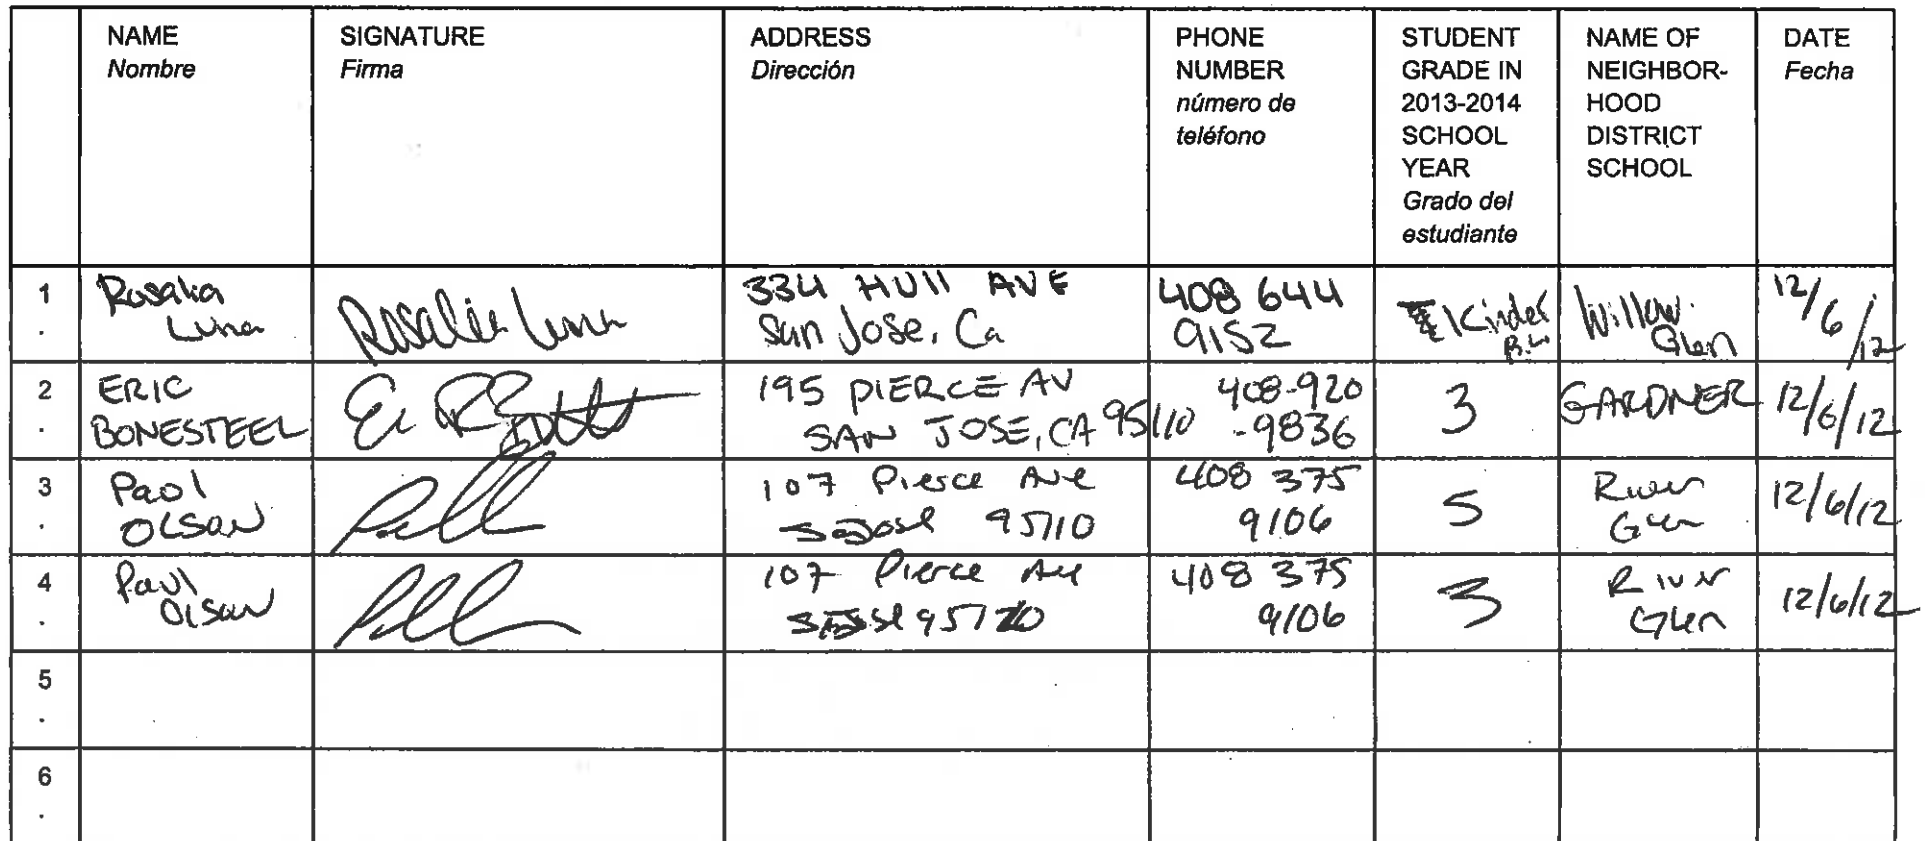 NAME
Nombre
SIGNATURE
Firma
ADDRESS
Dirección
PHONE
NUMBER
número de
teléfono
STUDENT
GRADE IN
2013-2014
SCHOOL
YEAR
Grado del
estudiante
NAME OF
NEIGHBOR-
HOOD
DISTRICT
SCHOOL
DATE
Fecha
1
.
Rosalia
Luna
Rosalia Luna
334 Hull AVE
San Jose, Ca
408 644
9152
Kinder
Willow
Glen
12/6/12
2
.
ERIC
BONESTEEL
195 PIERCE AV
SAN JOSE, CA 95110
408-920
-9836
3
GARDNER
12/6/12
3
.
Paol
OLSON
107 Pierce Ave
SJose 95110
408 375
9106
5
River
Glen
12/6/12
4
.
Paul
Olson
107 Pierce Ave
95110
408 375
9106
3
River
Glen
12/6/12
5
.
6
.